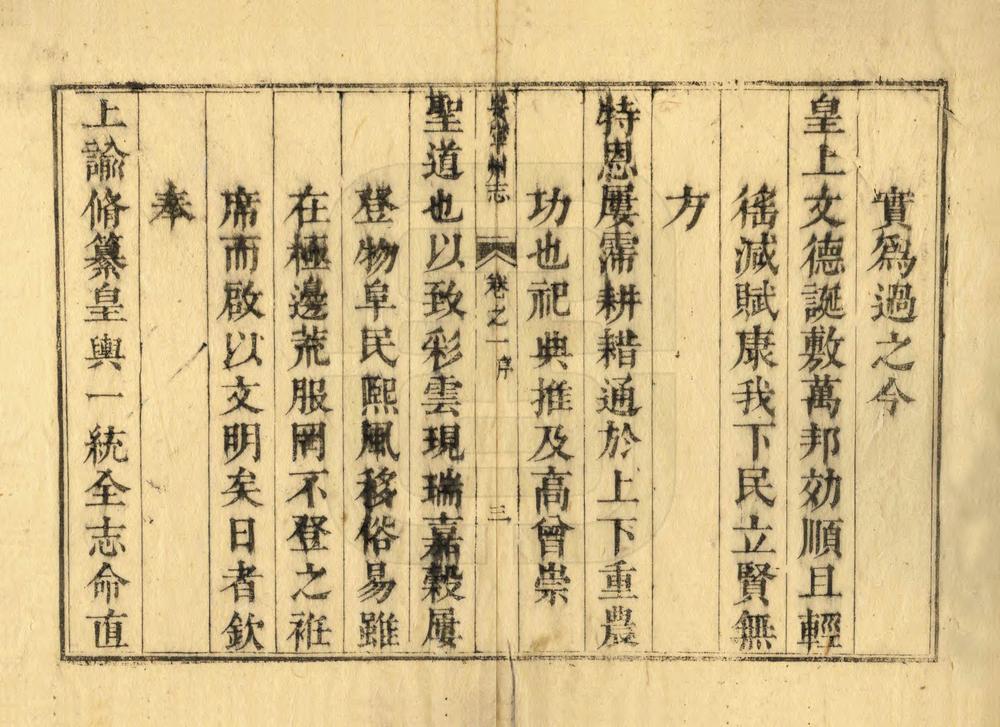 實爲過之今
皇上文德誕敷萬邦効順且輕
徭減賦康我下民立賢無
方
特恩屢霈耕耤通於上下重農
功也祀典推及高曾崇
安寧州志 卷之一 序 三
聖道也以致彩雲現瑞嘉穀屢
登物阜民熙風移俗易雖
在極邊荒服罔不登之袵
席而啟以文明矣日者欽
奉
上諭脩纂皇輿一統全志命直